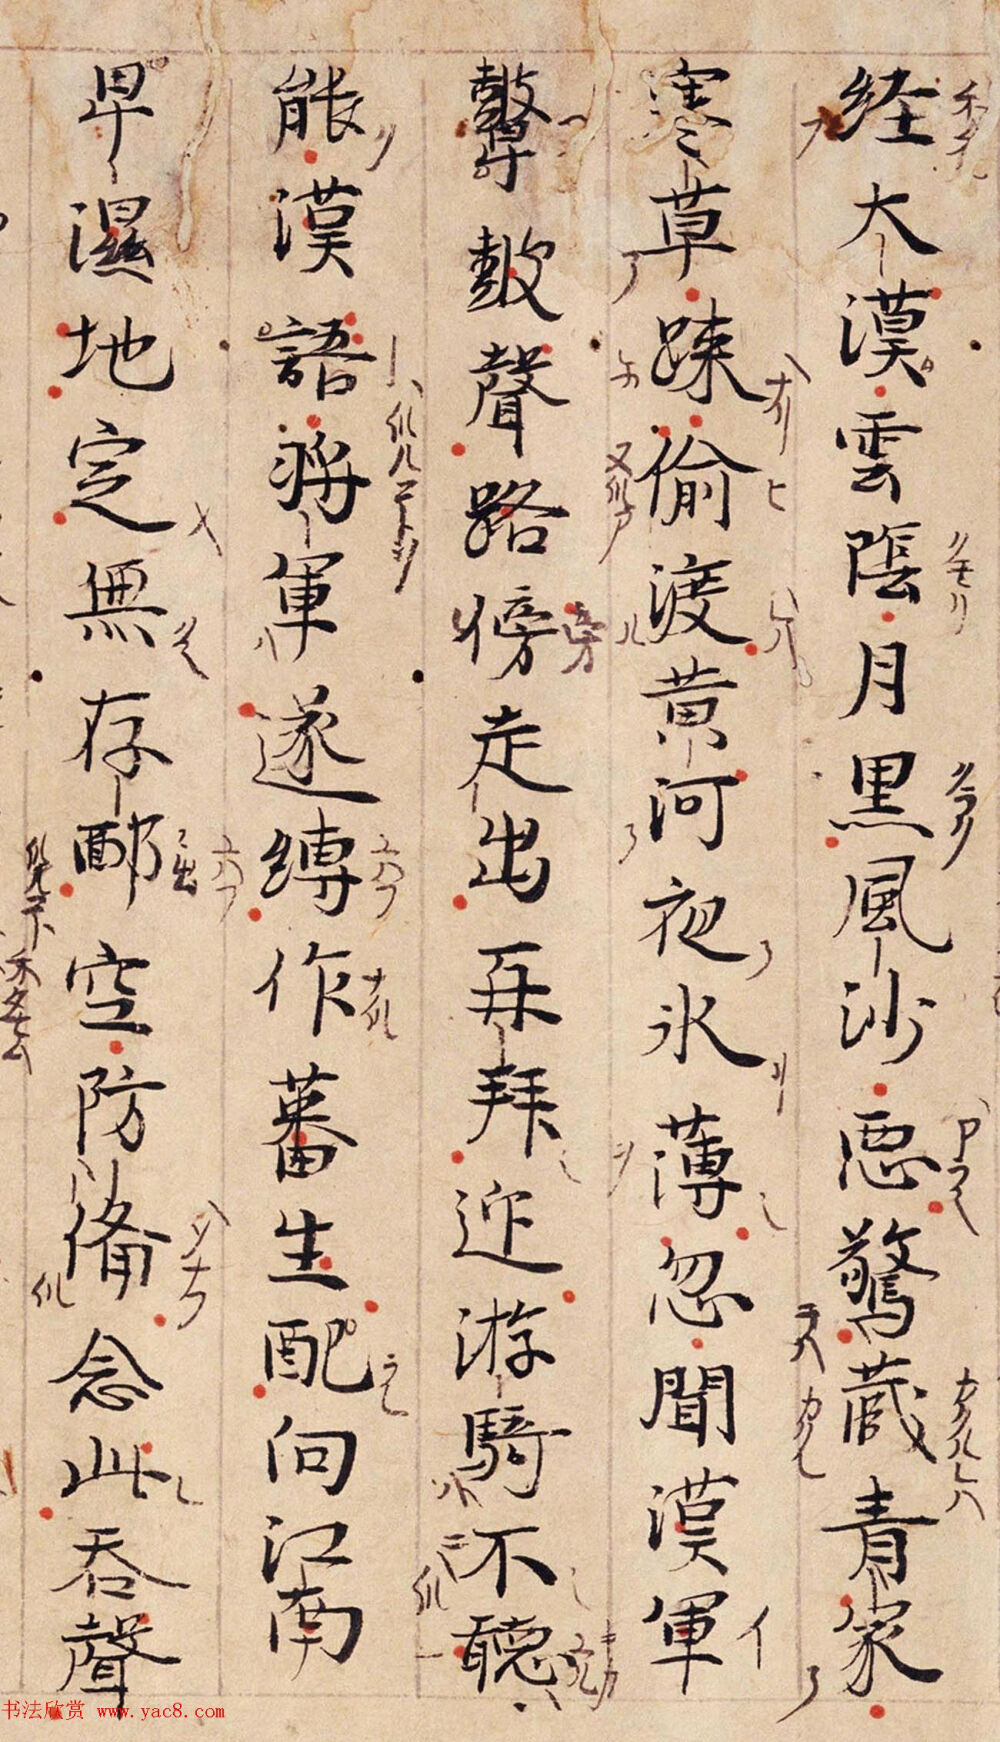 経大漠雲陰月黒風沙悪驚蔵青冢
寒草踈偷渡黄河夜氷薄忽聞漢軍
鼙皷聲路傍走出再拜迎游騎不聽
能漢語將軍遂縛作蕃生配向江南
卑濕地定無存䘏空防俻念此吞聲
书法欣赏 www.yac8.com